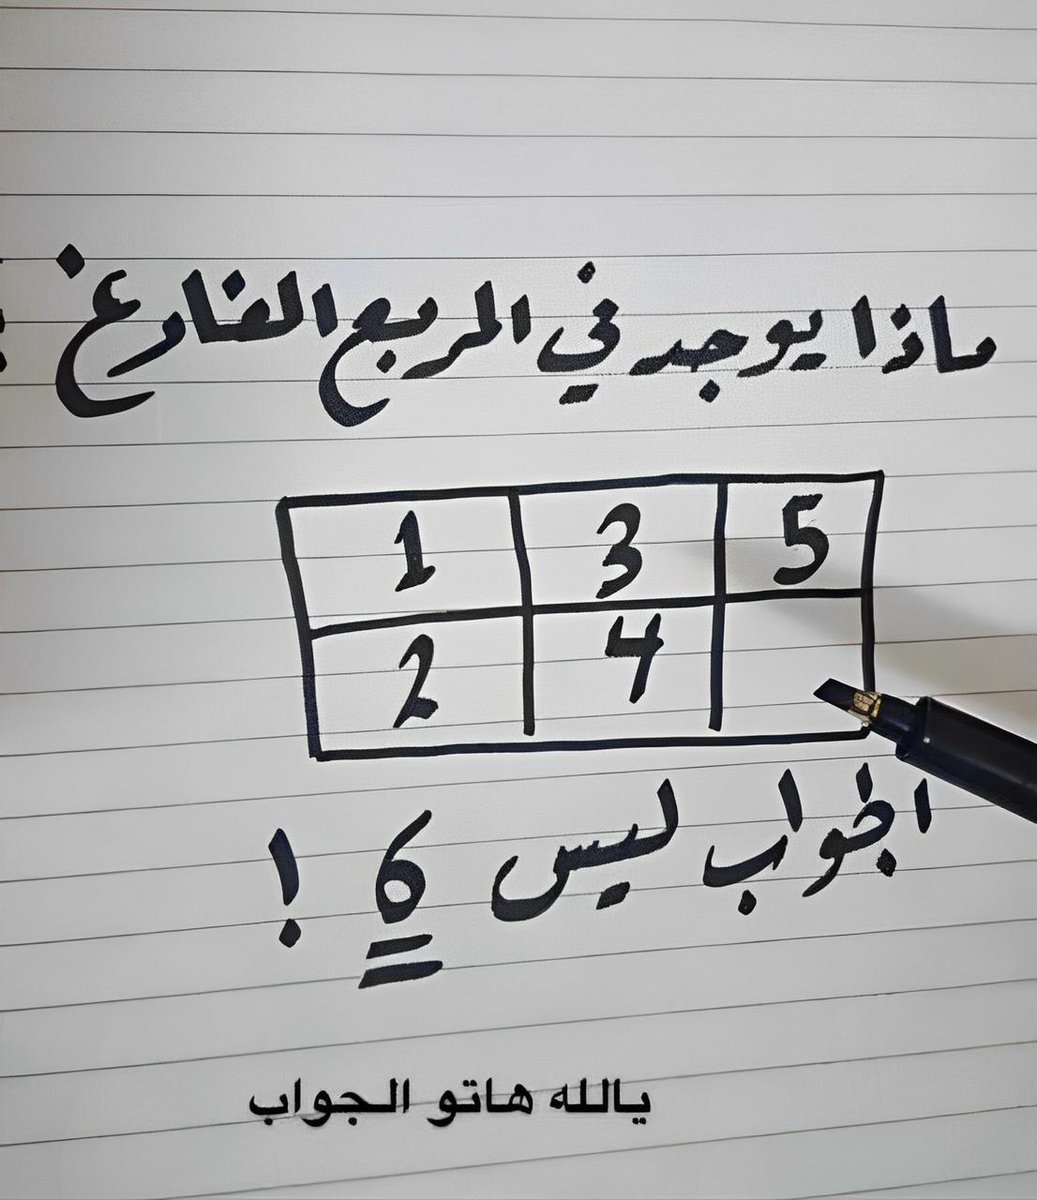 ماذا يوجد في المربع الفارغ
1 3 5
2 4
الجواب ليس 6 !
يالله هاتو الجواب